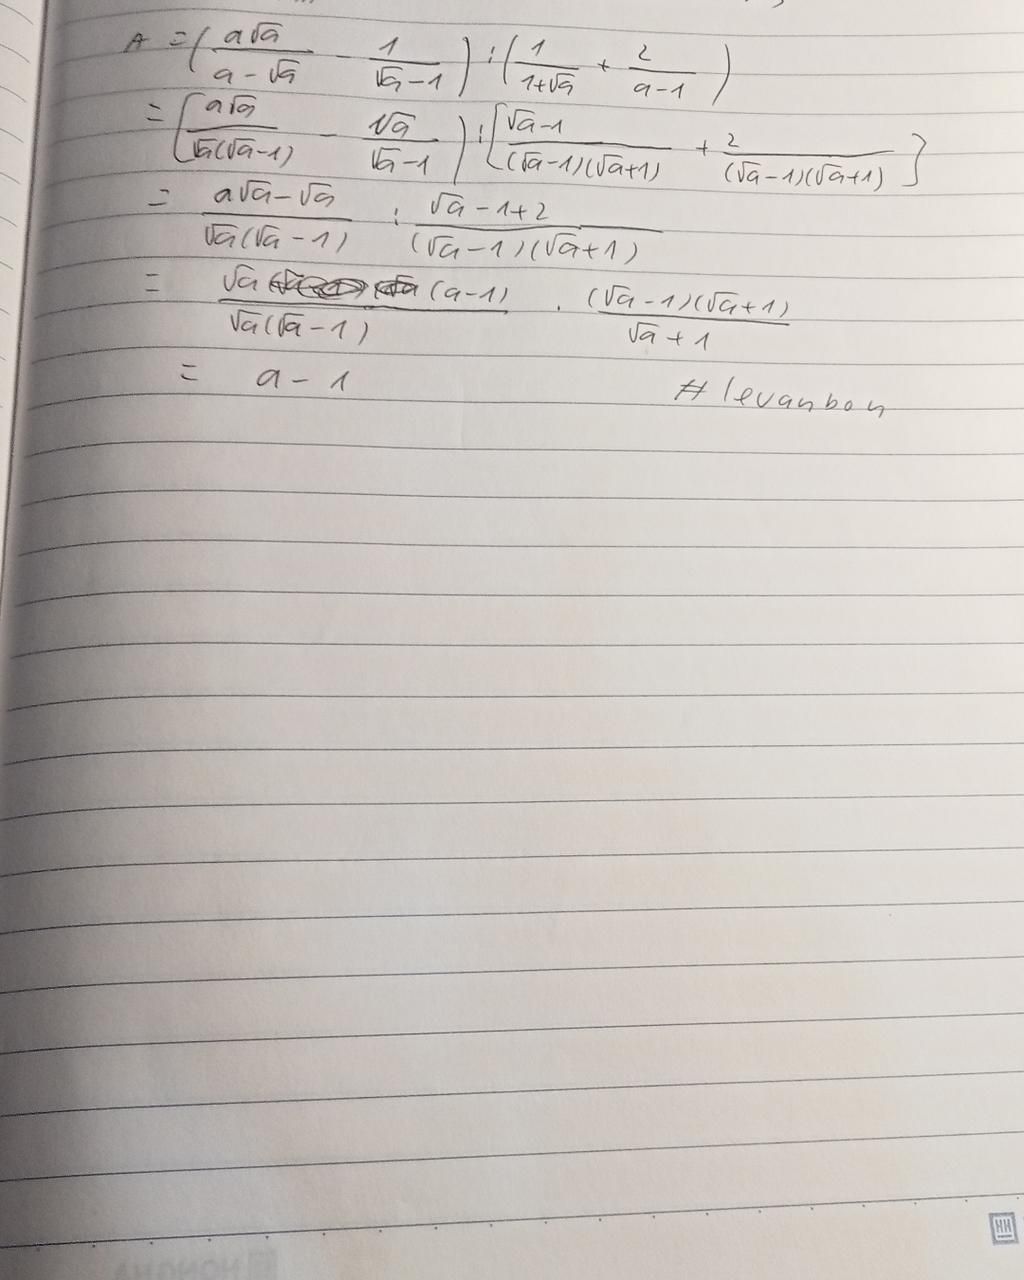 A = ( a√a / a - √a - 1 / √a - 1 ) : ( 1 / 1+√a + 2 / a - 1 )
= [ a√a / √a(√a-1) - √a / √a - 1 ) : [ √a - 1 / (√a-1)(√a+1) + 2 / (√a-1)(√a+1) ]
= a√a - √a / √a(√a - 1) : √a - 1+2 / (√a - 1)(√a+1)
= √a (a-1) / √a(√a - 1) . (√a - 1)(√a+1) / √a + 1
= a - 1 # levanbon
HH